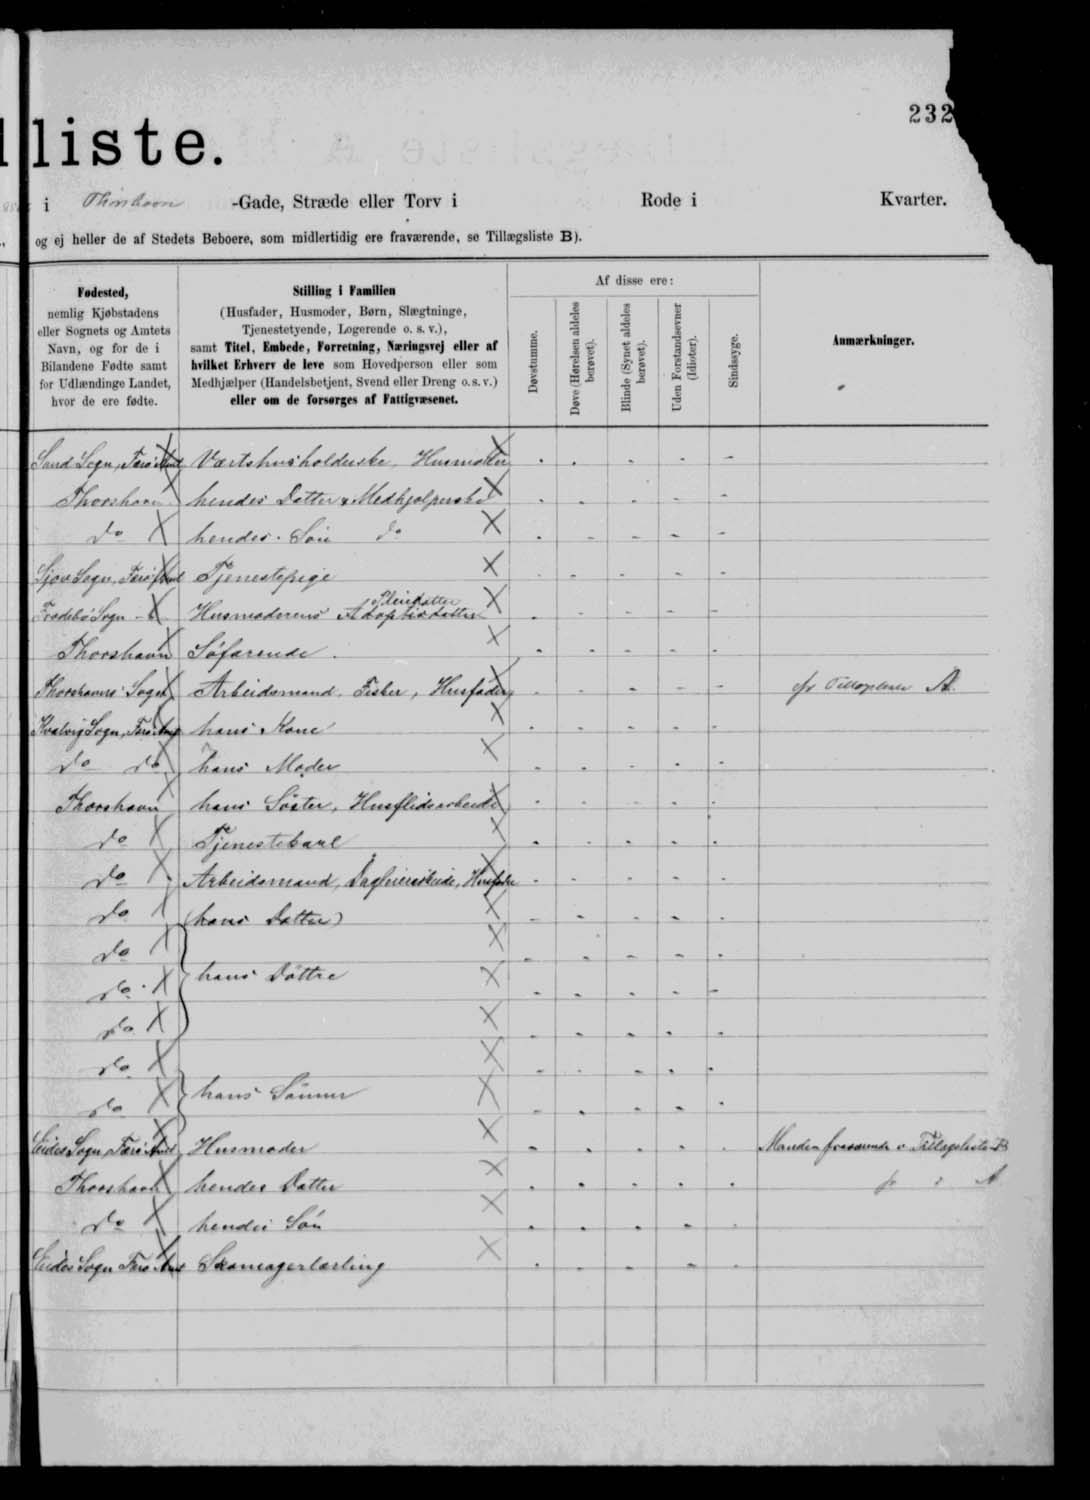 232
liste.
i Thorshavn -Gade, Stræde eller Torv i Rode i Kvarter.
og ej heller de af Stedets Beboere, som midlertidig ere fraværende, se Tillægsliste B).
Fødested,
nemlig Kjøbstadens
eller Sognets og Amtets
Navn, og for de i
Bilandene Fødte samt
for Udlændinge Landet,
hvor de ere fødte.
Stilling i Familien
(Husfader, Husmoder, Børn, Slægtninge,
Tjenestetyende, Logerende o. s. v.),
samt Titel, Embede, Forretning, Næringsvej eller af
hvilket Erhverv de leve som Hovedperson eller som
Medhjælper (Handelsbetjent, Svend eller Dreng o. s. v.)
eller om de forsørges af Fattigvæsenet.
Af disse ere:
Døvstumme.
Døve (Hørelsen aldeles
berøvet).
Blinde (Synet aldeles
berøvet).
Uden Forstandsevner
(Idioter).
Sindssyge.
Anmærkninger.
Sand Sogn, Færø Amt Værtshusholderske, Husmoder
Thorshavn hendes Datter, Medhjælperske
do hendes Søn do
Sjov Sogn, Færø Amt Tjenestepige
Pleiedatter
Sogn Husmoderens Adoptivdatter
Thorshavn Søfarende.
Thorshavns Sogn Arbeidsmand, Fisker, Husfader A.
Kvalvig Sogn, Færø Amt hans Kone
do do hans Moder
Thorshavn hans Søster, Husflidsarbeide
do Tjenestekarl
do Arbeidsmand, Husfader
do (hans Datter)
do
do hans Døttre
do
do
do hans Sønner
Eides Sogn Færø Amt Husmoder Manden fraværende Tillægsliste B
Thorshavn hendes Datter A
do hendes Søn
Eides Sogn Færø Amt Skomagerlærling